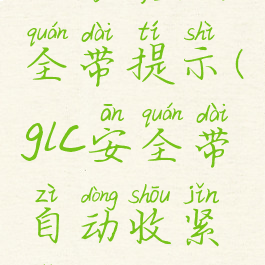 quán dài tí shì
全带提示(
ān quán dài
glc安全带
zì dòng shōu jǐn
自动收紧